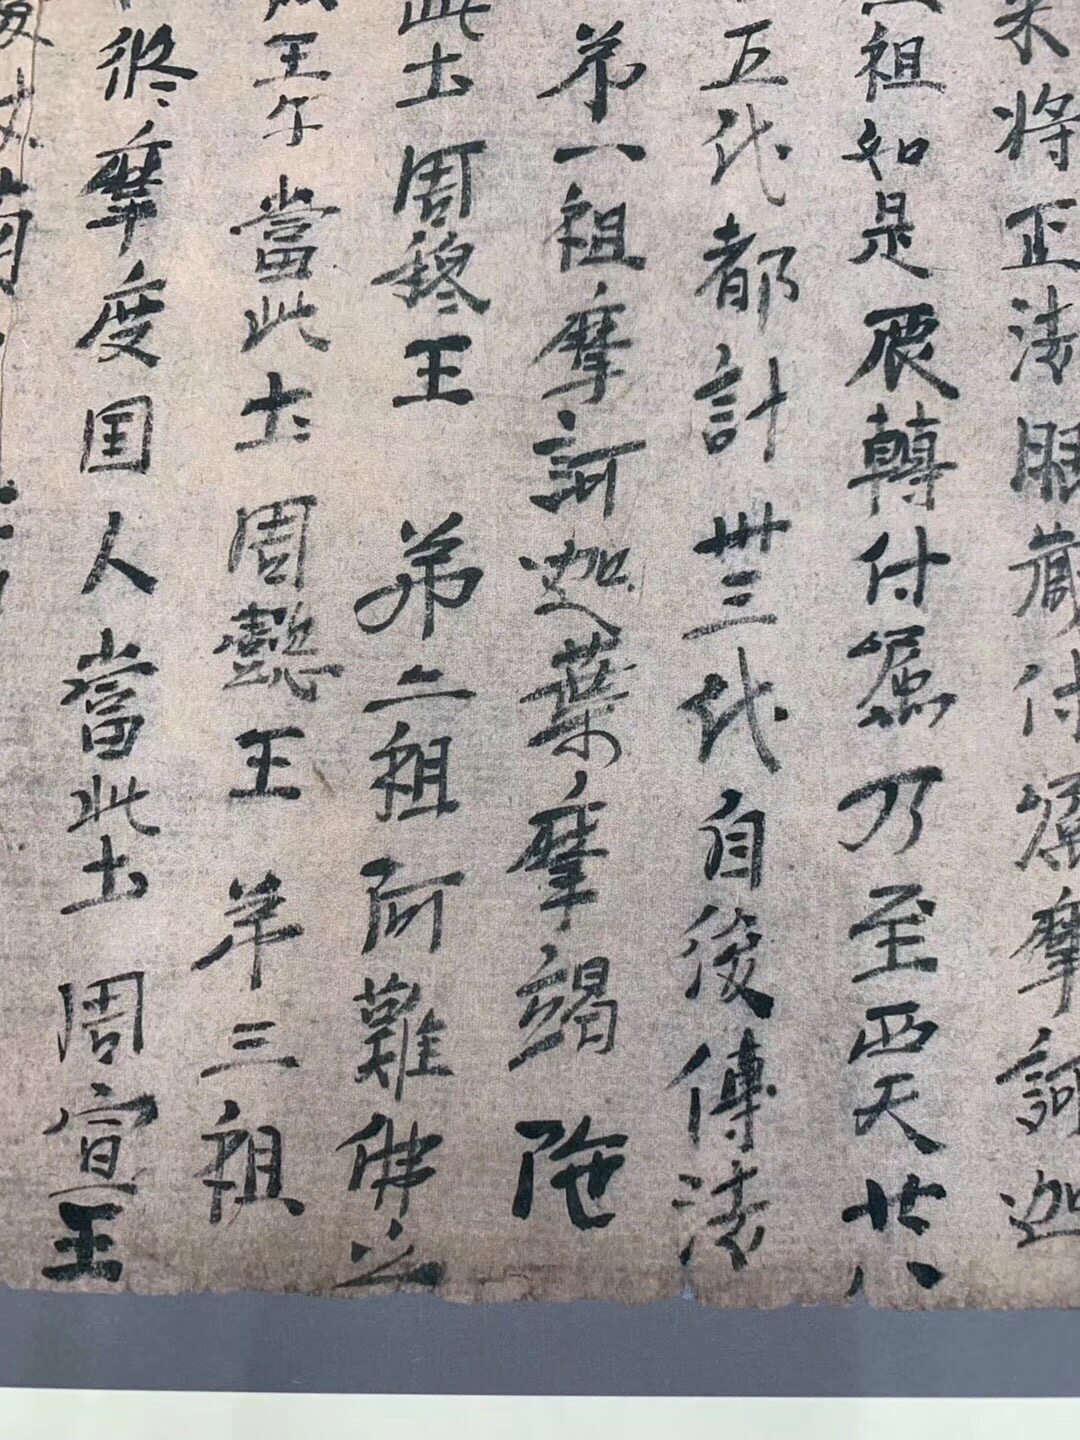 来将正法眼藏付嘱摩訶迦
祖如是展轉付嘱乃至西天廿八
五代都計卅三代自後傳法
弟一祖摩訶迦葉摩竭陁
此土周穆王 弟二祖阿難佛之
王午當此土周懿王 弟三祖
終摩度国人當此土周宣王